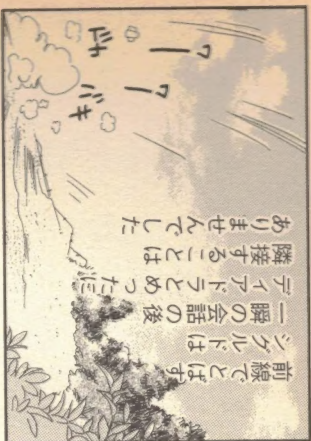 前線でとばす
シグルドは
一瞬の会話の後
ディアドラとめったに
隣接することは
ありませんでした
ドカーッ
バキーッ